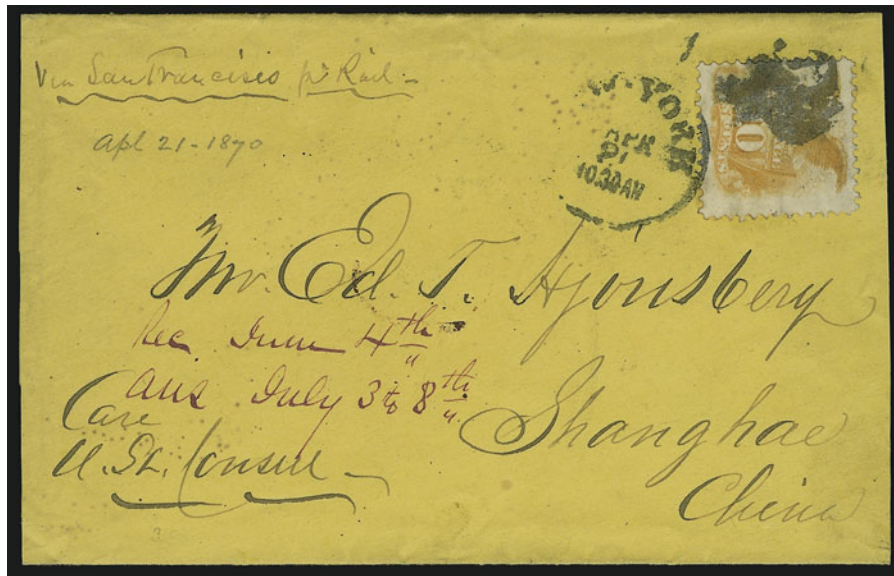 Via San Francisco pr Rail -
Apl 21-1870
YORK
APR
21
10.30AM
10
Mr. Ed. T.
Rec June 4th
ans July 3 to 8th
Care
U.St. Consul
Shanghae
China